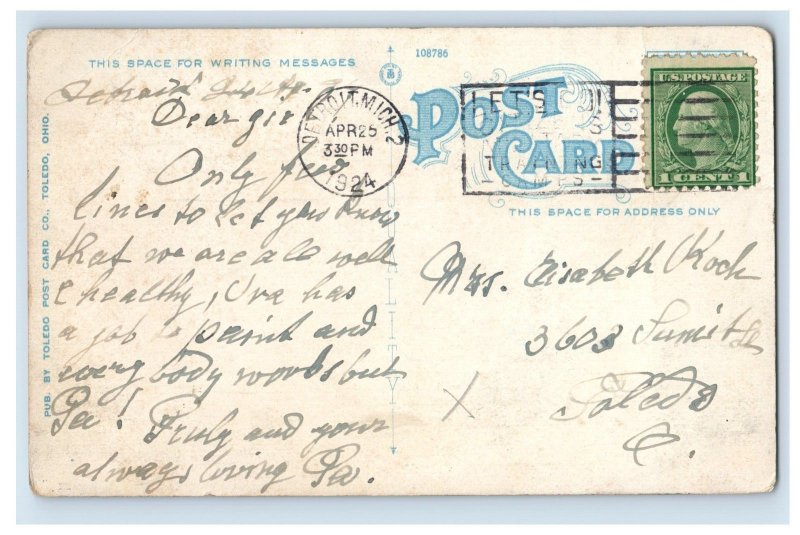 THIS SPACE FOR WRITING MESSAGES
108786
POST CARD
THIS SPACE FOR ADDRESS ONLY
PUB. BY TOLEDO POST CARD CO., TOLEDO, OHIO.
DETROIT, MICH. 2
APR 25
3 30 PM
1924
LET'S
U.S. POSTAGE
1 CENTS 1
Detroit
Dear
Only few
lines to let you know
that we are all well
& healthy, has
a job to paint and
every body works but
Pa!
Truly and your
always loving Pa.
Mrs. Elsabeth Koch
3603 Summit
Toledo
O.